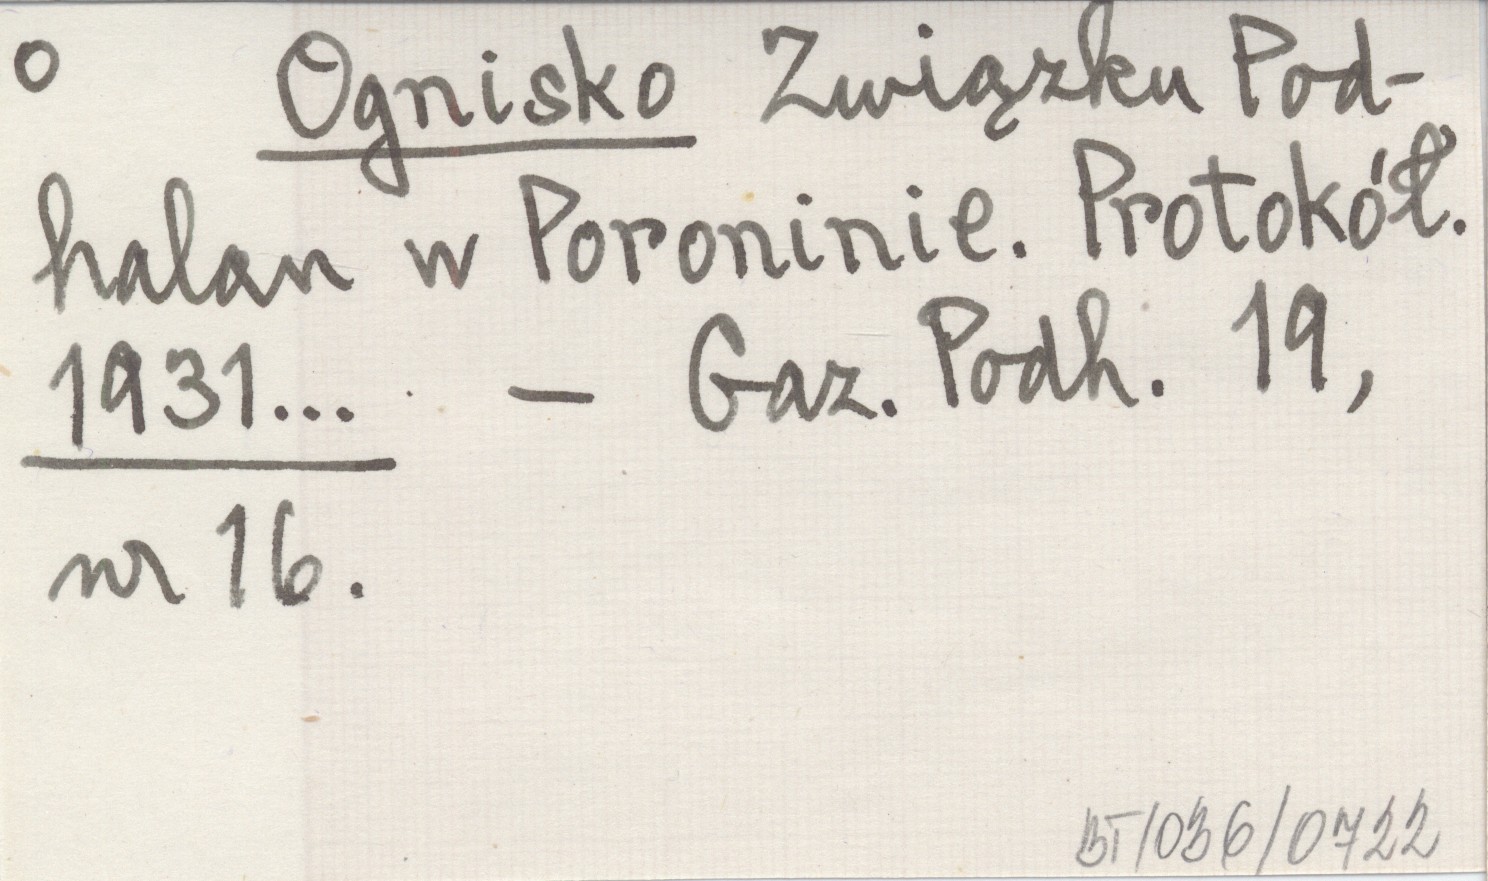 o Ognisko Związku Pod-
halan w Poroninie. Protokół.
1931... — Gaz. Podh. 19,
nr 16.
BT/036/0722